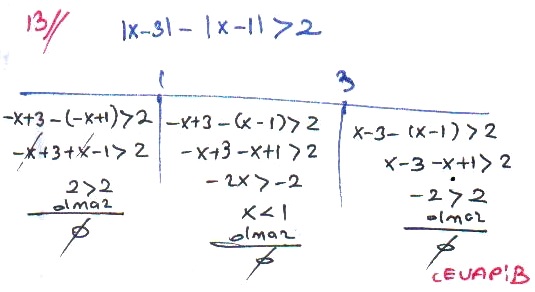 13// |x-3| - |x-1| > 2
1 3
-x+3-(-x+1)>2
-x+3+x-1>2
2>2
olmaz
∅
-x+3-(x-1)>2
-x+3-x+1>2
-2x>-2
x<1
olmaz
∅
x-3-(x-1)>2
x-3-x+1>2
-2>2
olmaz
∅
CEVAP:B